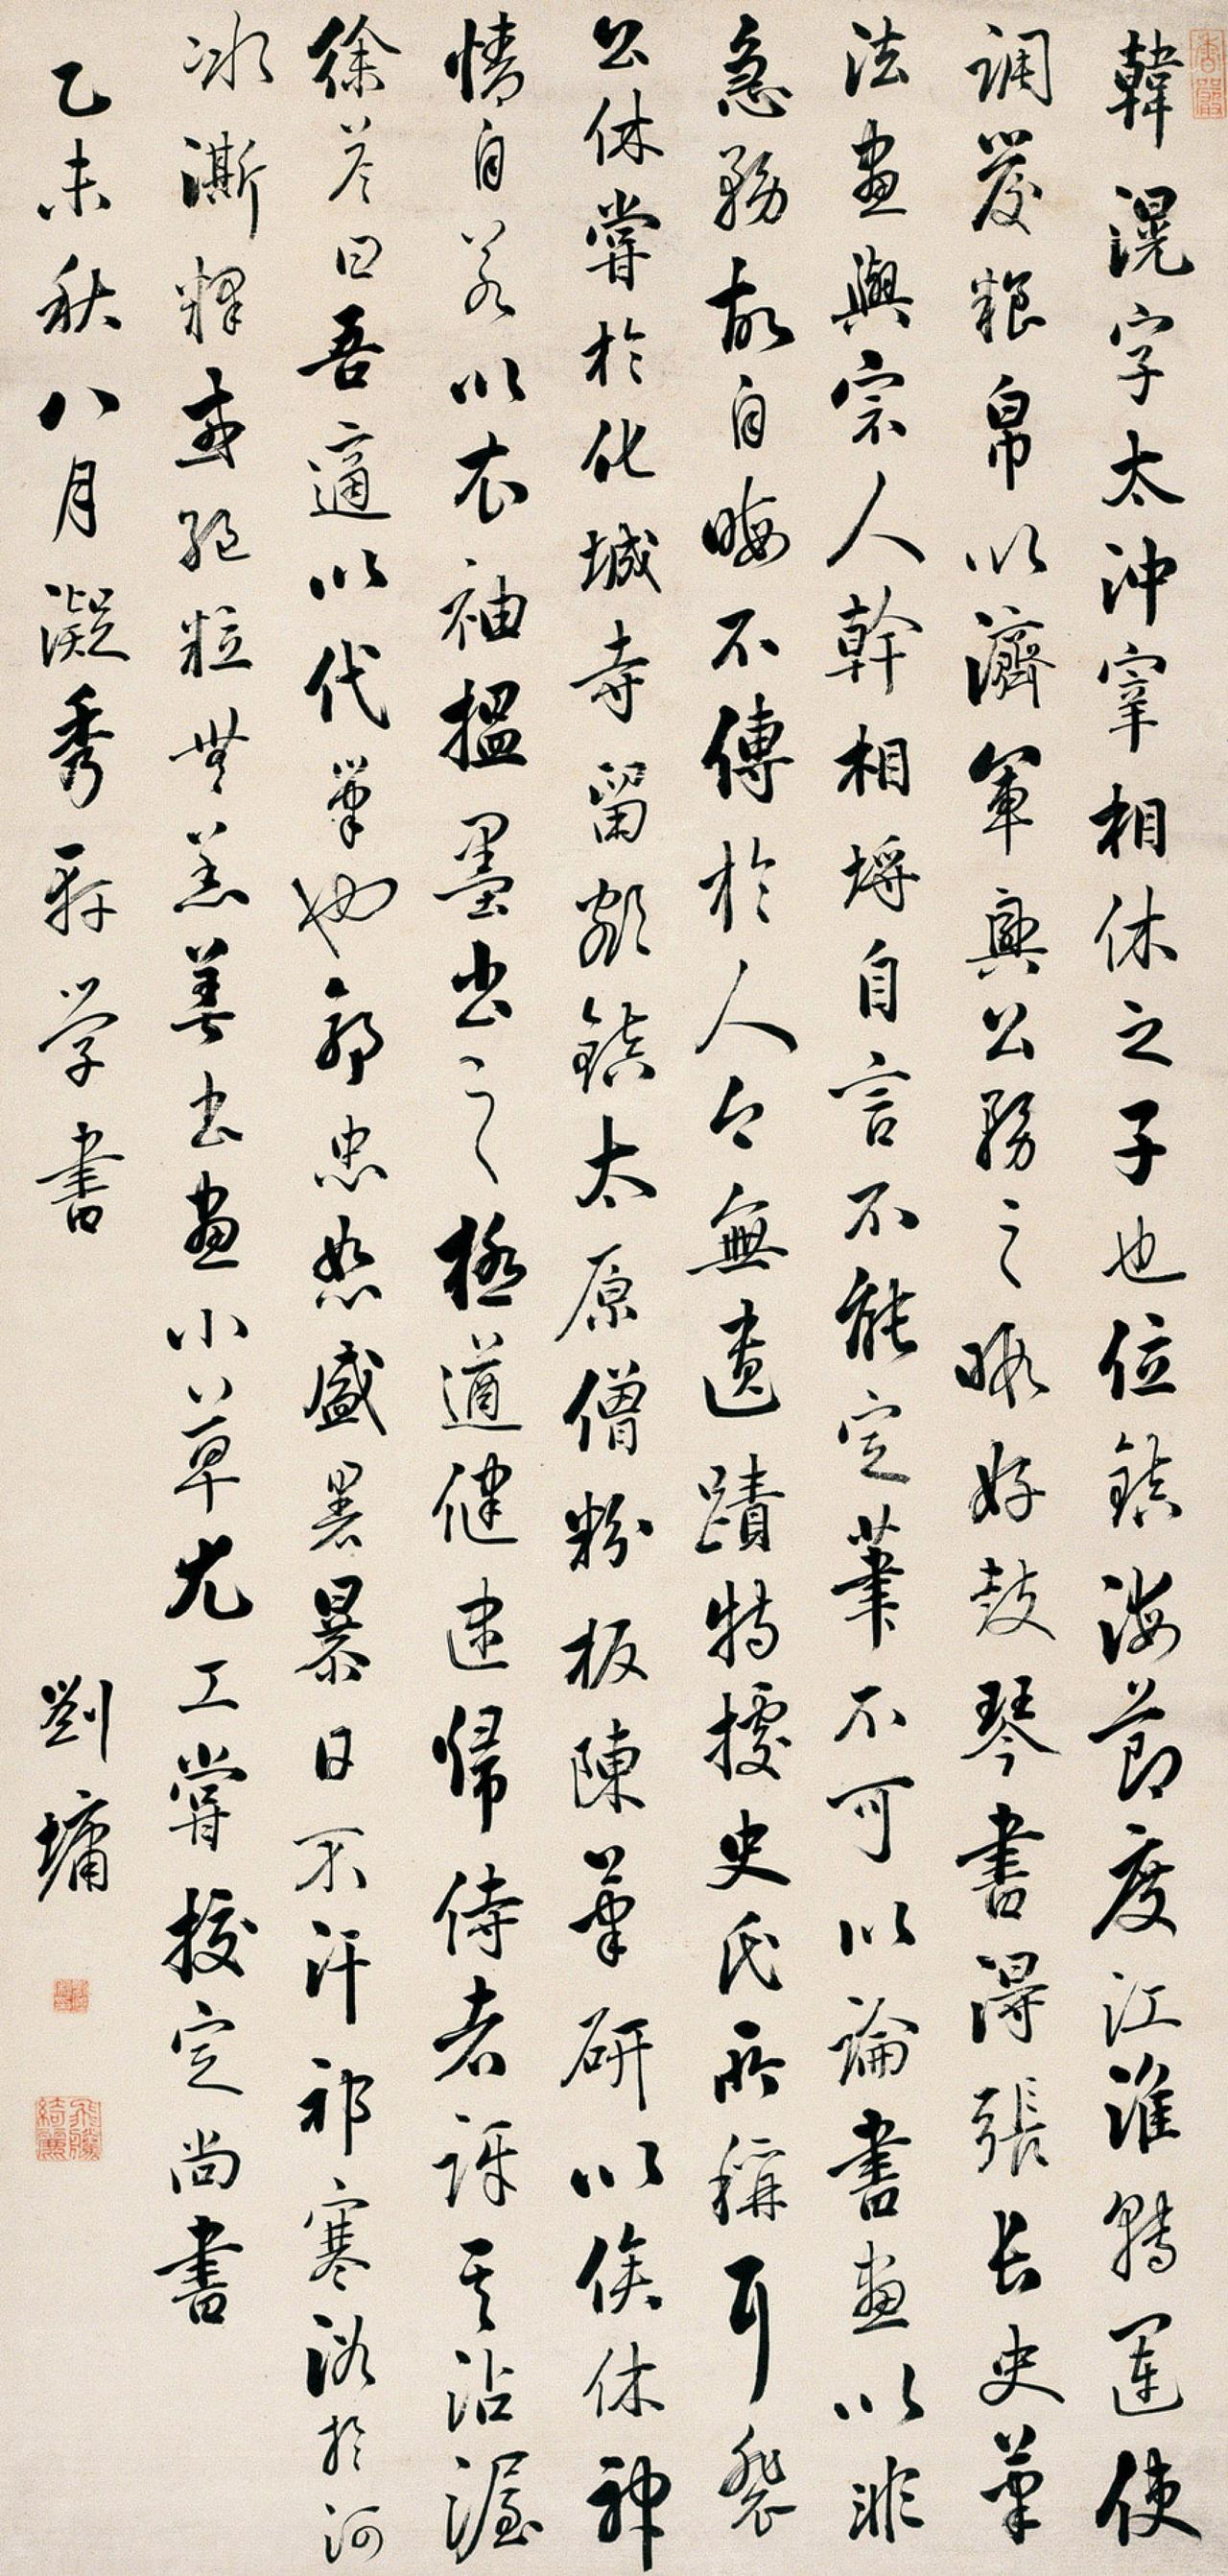 韓滉字太沖宰相休之子也位鎮海節度江淮轉運使
調發粮帛以濟軍興公務之暇好鼓琴書得張長史筆
法畫與宗人幹相埒自言不能定筆不可以論書畫以非
急務故自晦不傳於人今無遺蹟特據史氏所稱耳裴
公休嘗於化城寺留額鎮太原僧粉板陳筆研以俟休神
情自若以衣袖揾墨書之極遒健逮歸侍者訝其沾渥
徐答曰吾適以代筆也郭忠恕盛暑暴日不汗祁寒浴於河
冰澌釋或絕粒無恙善書畫小草尤工嘗挍定尚書
乙未秋八月凝秀軒學書
劉墉